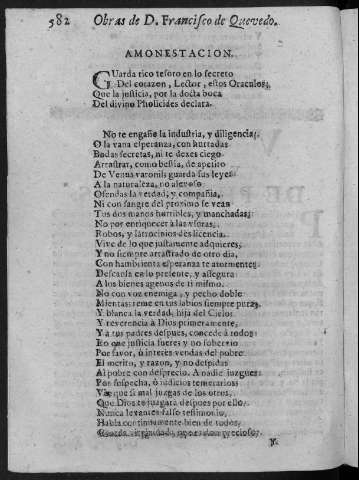 582 Obras de D. Francisco de Quevedo.
AMONESTACION.
GUarda rico tesoro en lo secreto
Del corazon, Lector, estos Oraculos,
Que la justicia, por la docta boca
Del divino Pholicides declara.
No te engañe la industria, y diligencia;
O la vana esperanza, con hurtadas
Bodas secretas, ni te dexes ciego
Arrastrar, como bestia, de apetito
De Venus varonil, guarda sus leyes
A la naturaleza, no alevoso
Ofendas la verdad, y compañia,
Ni con sangre del proximo se vean
Tus dos manos horribles, y manchadas;
No por enriquecer à las usuras,
Robos, y latrocinios des licencia.
Vive de lo que justamente adquieres;
Y no siempre arrastrado de otro dia,
Con hambrienta esperanza te atormentes;
Descansa en lo presente, y assegura
A los bienes agenos de ti mismo.
No con voz enemiga, y pecho doble
Mientas: reme en tus labios siempre pura,
Y blanca la verdad, hija del Cielo:
Y reverencia à Dios primeramente,
Y à tus padres despues, concede à todos
Lo que justicia fuere, y no sobervio
Por favor, ò interès vendas del pobre
El merito, y razon, y no despidas
Al pobre con desprecio. A nadie juzgues
Por sospecha, ò indicios temerarios;
Vè que si mal juzgas de los otros,
Que Dios te juzgarà despues por ello.
Nunca levantes falso testimonio,
Habla continuamente bien de todos,
Guarda virginidad,